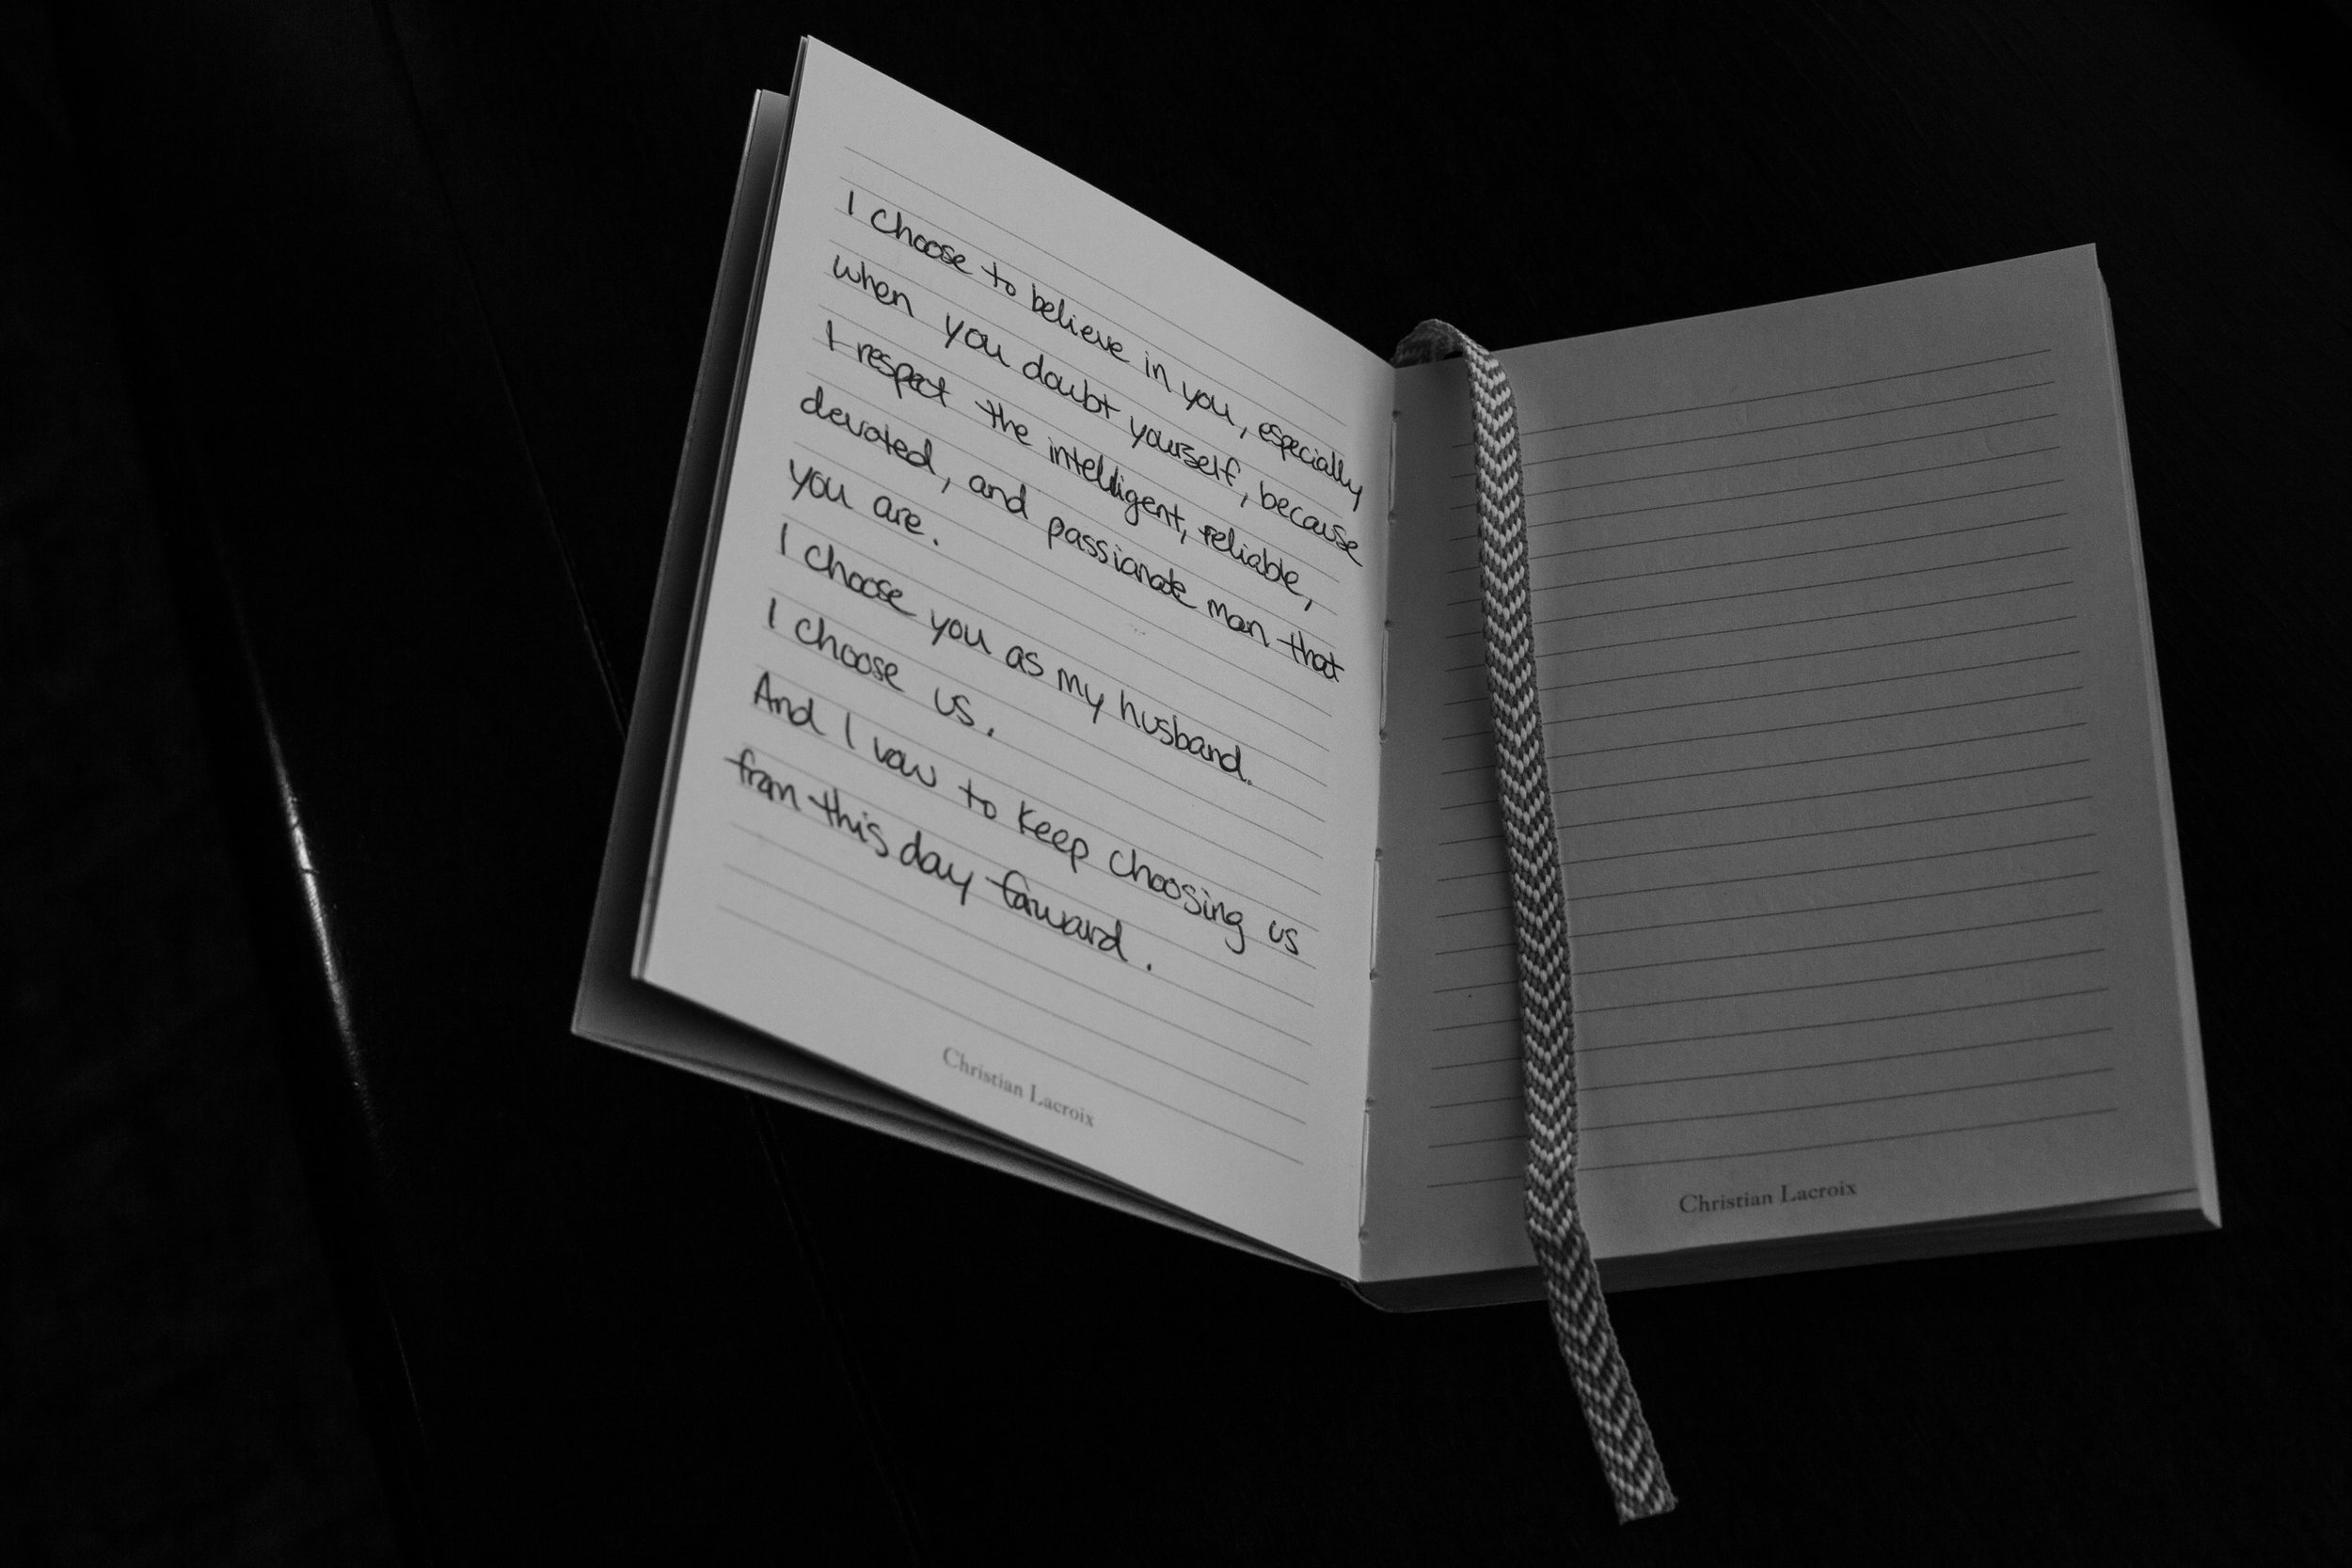 I choose to believe in you, especially
when you doubt yourself, because
I respect the intelligent, reliable,
devoted, and passionate man that
you are.
I choose you as my husband.
I choose us.
And I vow to keep choosing us
from this day forward.
Christian Lacroix
Christian Lacroix